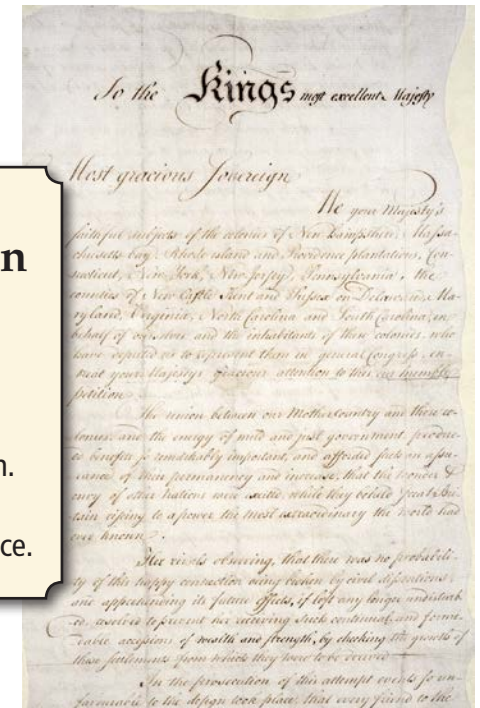 n
n.
ce.
To the Kings most excellent Majesty
Most gracious Sovereign
We your Majesty's
faithful subjects of the colonies of New Hampshire, Massa-
chusetts bay, Rhode island and Providence plantations, Con-
necticut, New York, New Jersey, Pennsylvania, the
counties of New Castle Kent and Sussex on Delaware, Ma-
ryland, Virginia, North Carolina and South Carolina, in
behalf of ourselves and the inhabitants of these colonies, who
have deputed us to represent them in general Congress, en-
treat your Majestys gracious attention to this our humble
petition.
The union between our Mother Country and these co-
lonies, and the energy of mild and just government, produc-
ed benefits so remarkably important, and afforded such an assu-
rance of their permanency and increase, that the wonder &
envy of other Nations were excited, while they beheld Great Bri-
tain riseing to a power the most extraordinary the world had
ever known.
Her rivals observing, that there was no probabili-
ty of this happy connection being broken by civil dissentions,
and apprehending its future effects, if left any longer undisturb-
ed, resolved to prevent her receiving such continual and formi-
dable accessions of wealth and strength, by checking the growth of
these settlements from which they were to be derived.
In the prosecution of this attempt events so un-
favourable to the design took place, that every friend to the